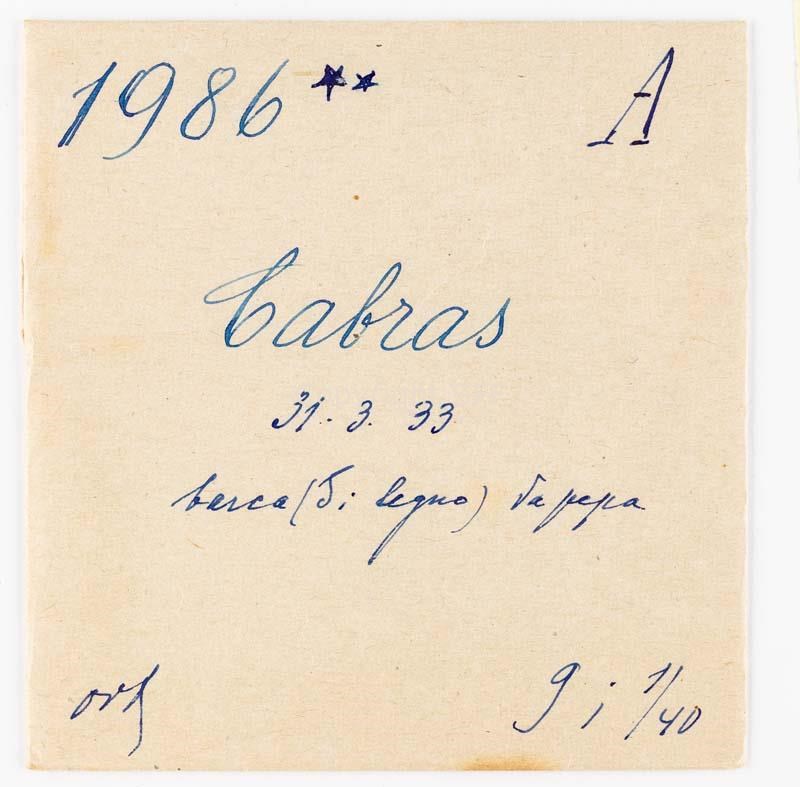 1986 ** A
Cabras
31. 3. 33
barca (di legno) da pepa
9 i 1/40